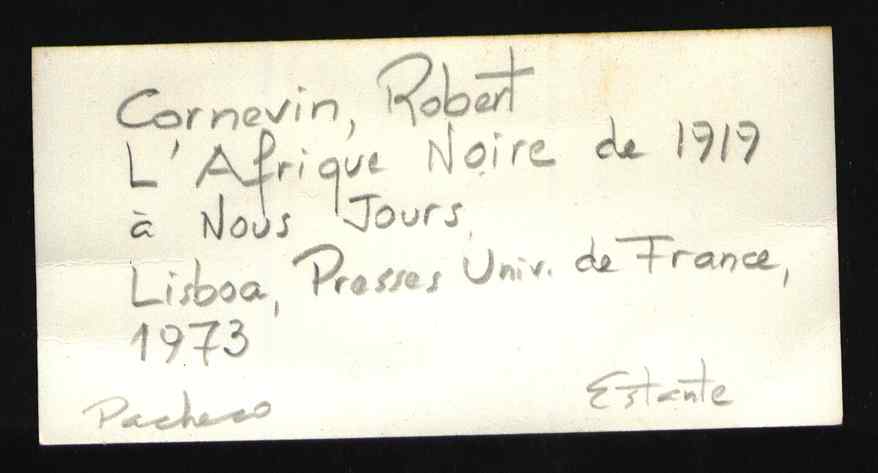 Cornevin, Robert
L'Afrique Noire de 1919
à Nous Jours,
Lisboa, Presses Univ. de France,
1973
Pacheco Estante